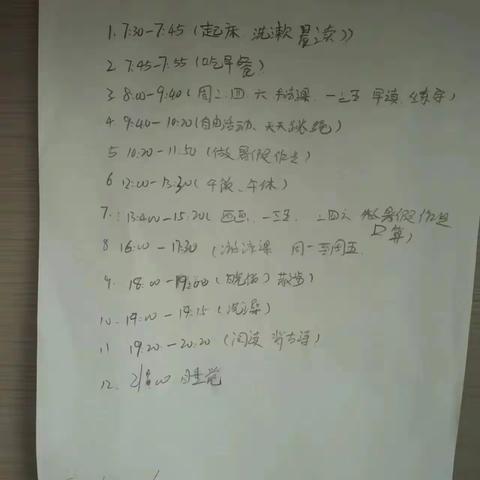 1. 7:30-7:45 (起床 洗漱 晨读))
2 7:45-7:55 (吃早餐)
3 8:00-9:40 (周二.四.六 书法课. 一三五 早读. 练字)
4 9:40-10:20 (自由活动、天天跳绳)
5 10:20-11:50 (做暑假作业)
6 12:00-13:30 (午饭、午休)
7. 13:40-15:20( 画画. 一三五. 二四六 做暑假作业 口算)
8 16:00-17:30 (游泳课 周一三周五
9. 18:00-19:00 (晚饭) 散步)
10. 19:00-19:15 (洗澡)
11 19:20-20:20 (阅读 背古诗)
12. 21:00 睡觉